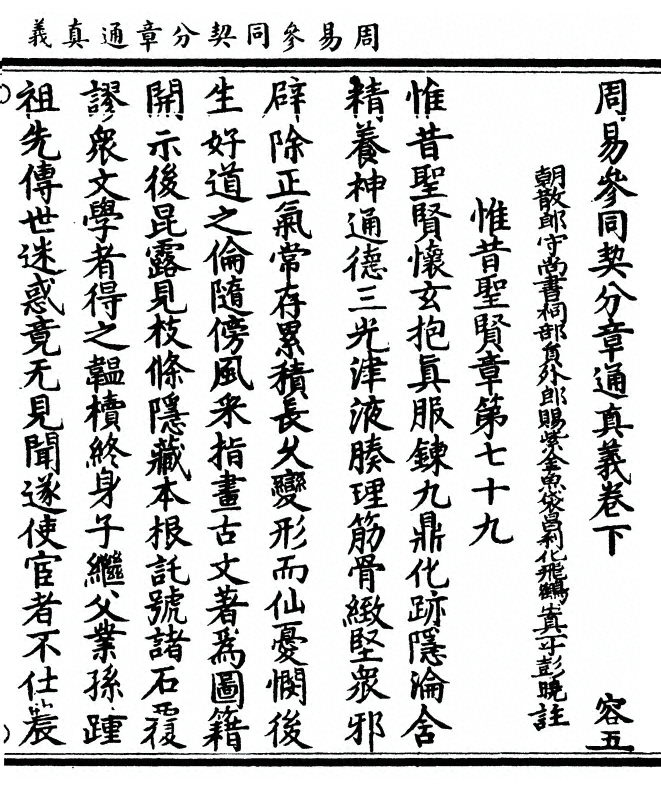 周易參同契分章通真義
周易參同契分章通真義卷下 容五
朝散郎守尚書祠部員外郎賜紫金魚袋昌利化飛鶴山真一子彭曉註
惟昔聖賢章第七十九
惟昔聖賢懷玄抱真服鍊九鼎化跡隱淪含
精養神通德三光津液腠理筋骨緻堅衆邪
辟除正氣常存累積長久變形而仙憂憫後
生好道之倫隨傍風采指畫古文著為圖籍
開示後昆露見枝條隱藏本根託號諸石覆
謬衆文學者得之韞櫝終身子繼父業孫踵
祖先傳世迷惑竟无見聞遂使宦者不仕農